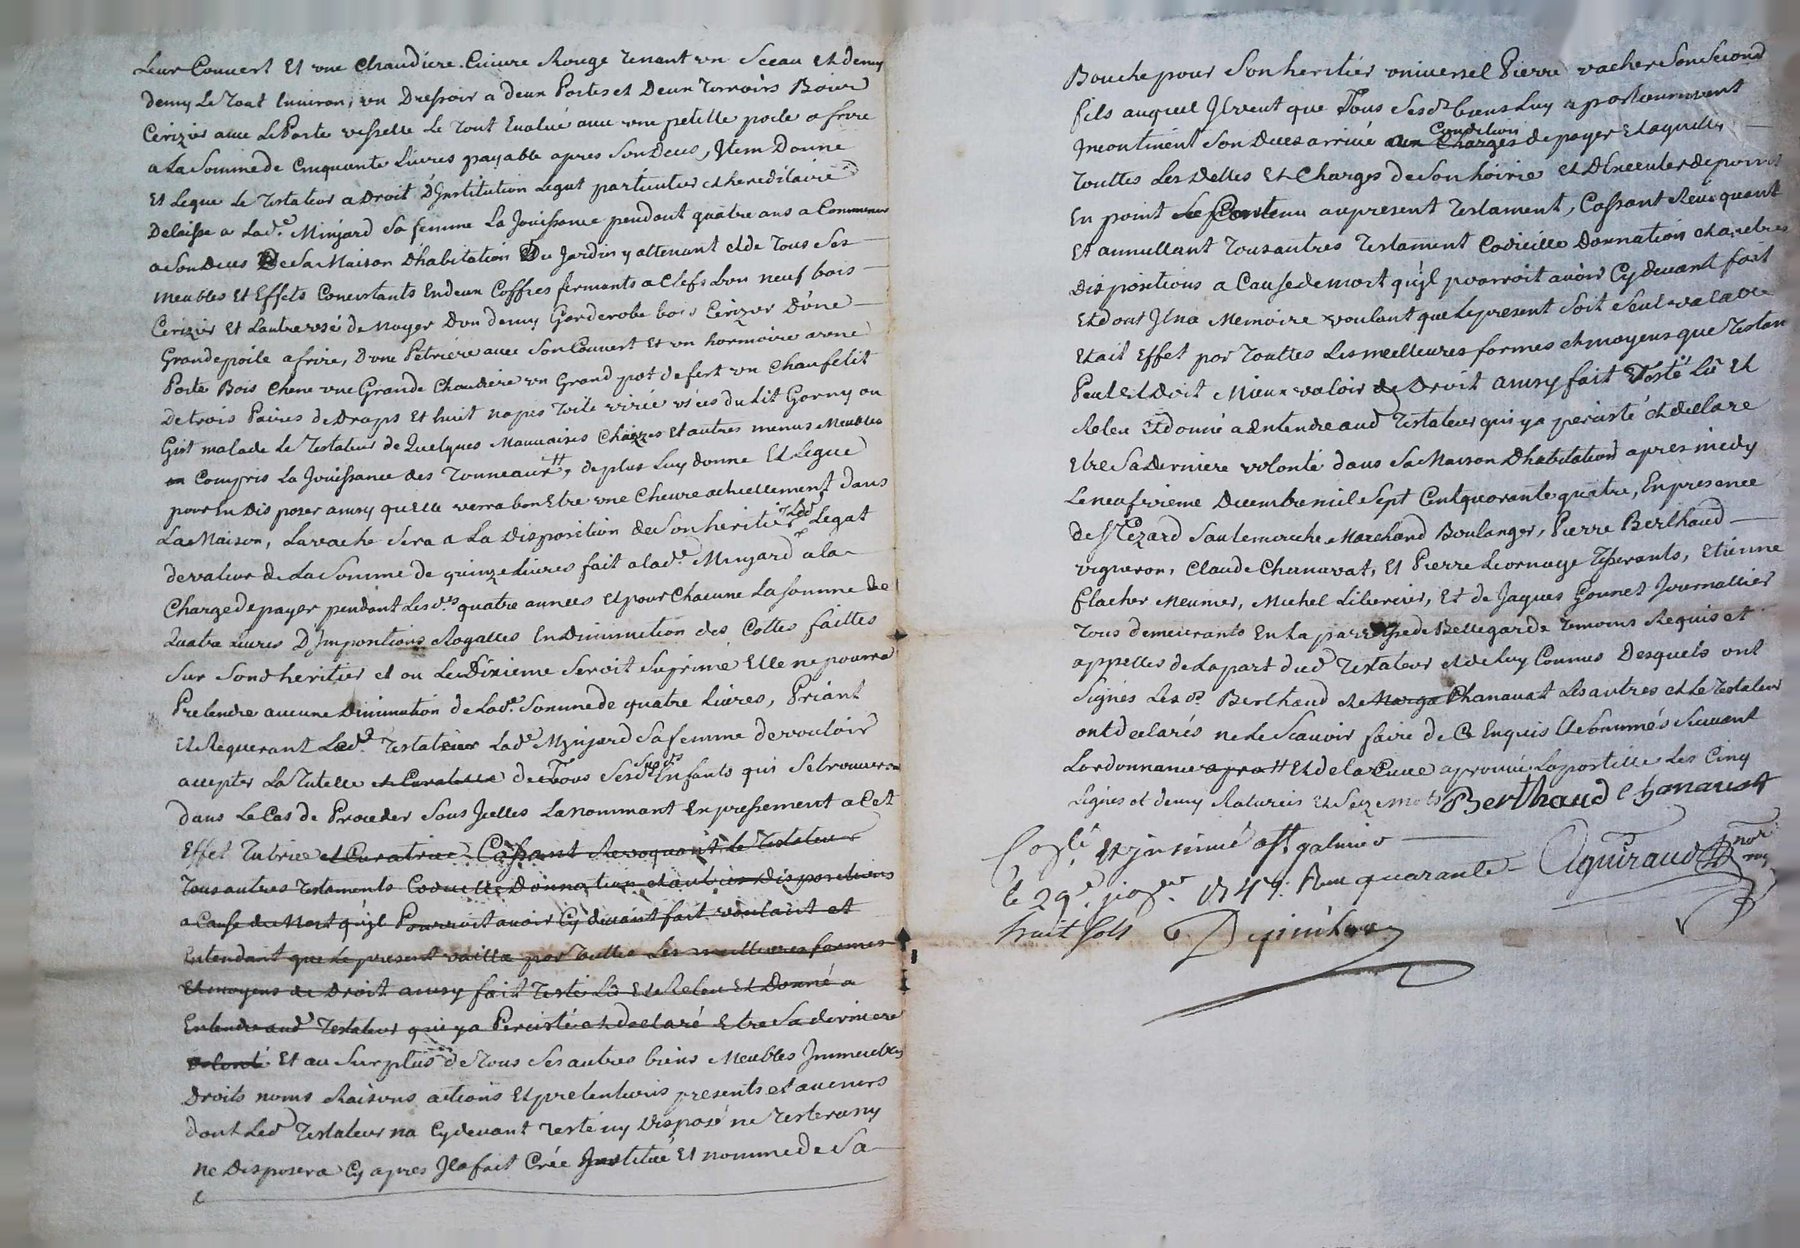 Leur Couvert Et une Chaudiere Cuivre Rouge tenant un Sceau et demy
demy Le tout Environ, un Dressoir a deux Portes et Deux tirroirs Bois
Cerizier avec Le Porte vesselle Le tout Evalué avec une petitte poele a frire
a La Somme de Cinquante Livres payable apres Son Deces, Item Donne
Et Legue Le Testateur a Droit D'Institution Legat particulier et hereditaire
Delaisse a Lad.e Minjard Sa femme La Jouissance pendant quatre ans a Commencer
a Son Deces De Sa Maison D'habitation Du Jardin y attenant et de Tous Ses
Meubles Et Effets Concistants En deux Coffres fermants a Clefs L'un neuf bois
Cerizier Et L'autre usé de Noyer D'un demy Garderobe bois Cerizier D'une
Grande poile a frire, D'une Petriere avec Son Couvert Et un hormoire a une
Porte Bois Chene une Grande Chaudiere un Grand pot de fert un Chaufelit
De trois Paires de Draps Et huit napes Toile du Lit Garny ou
Gist malade Le Testateur de Quelques Mauvaises Chaizes Et autres menus Meubles
Compris La Jouissance des Tonneaux, de plus Luy donne Et Legue
pour En Disposer ainsy qu'elle verra bon Etre une Chevre actuellement dans
La Maison, La vache Sera a La Disposition de Son heritier Led. Legat
de valeur de La Somme de quinze Livres fait a lad.e Minjard a la
Charge de payer pendant Lesd.s quatre années Et pour Chacune La Somme de
Quatre Livres D'Impositions Royalles En Diminution des Cottes faittes
Sur Sond heritier et ou Le Dixieme Seroit Suprimé Elle ne pourra
Pretendre aucune Diminution de Lad.e Somme de quatre Livres, Priant
Et Requerant Led.t Testateur Lad.e Minjard Sa femme de vouloir
accepter La Tutelle et Curatelle de Tous Sesd. Enfants qui Se trouveron
dans Le Cas de Proceder Sous Icelles La nommant Expressement a Cet
Effet Tutrice et Curatrice Cassant Revoquant Le Testateur
Tous autres Testaments Codicille Donnation et autres Dispositions
a Cause de Mort qu'il Pourroit avoir Cy devant fait voulant et
Entendant que Le present vaille par Touttes Les meilleures formes
Et moyens de Droit ainsy fait Testé Lû Et Releu Et Donné a
Entendre aud Testateur qui y a Percisté et declaré Etre Sa derniere
volonté Et au Surplus de Tous Ses autres biens Meubles Immeubles
Droits noms Raisons actions Et pretentions presents et avenirs
dont Led Testateur na Cy devant Testé ny Disposé ne Testera ny
ne Disposera Cy apres Il a fait Crée Institué Et nomme de Sa
Bouche pour Son heritier universel Pierre vacher Son Second
fils auquel Il veut que Tous Sesd. biens Luy apartiennent
Incontinent Son Deces arrivé Condition
aux Charges de payer Et aquiller
Touttes Les Dettes Et Charges de Son hoirie Et D'Executer de point
En point Le Contenu au present Testament, Cassant Revoquant
Et annullant Tous autres Testament Codicille Donnation et autres
Dispositions a Cause de mort qu'il pourroit avoir Cy devant fait
Et dont Il na Memoire voulant que Le present Soit Seul valable
Et ait Effet par Touttes Les meilleures formes et moyens que Testam
Peut Et Doit Mieux valoir de Droit ainsy fait Testé Lû Et
Releu Et donné a Entendre aud Testateur qui y a percisté et declare
Etre Sa Derniere volonté dans Sa Maison D'habitation apres midy
Le neufvieme Decembre mil Sept Cent quarante quatre, En presence
de S.r Cezard Marchand Boulanger, Pierre Berthaud
vigneron, Claude Chanavat, Et Pierre Tisserants, Etienne
flacher Meunier, Michel, Et de Jaques Gounet Journallier
Tous demeurants En La parroisse de Bellegarde Temoins Requis et
appelles de La part dud Testateur et de Luy Connus Desquels ont
Signés Les d. Berthaud et Chanavat Les autres et Le Testateur
ont declarés ne Le Scavoir faire de Ce Enquis Et Sommés Suivant
L'ordonnance Et de La Cause aprouvé L'apostille Les Cinq
Lignes et demy Raturées Et Seize mots Berthaud Chanavat
Con.lé et insinué a S.t galmier
le 29.e 1745. Reçu quarante Aguiraud no.re roy.
huit Sols